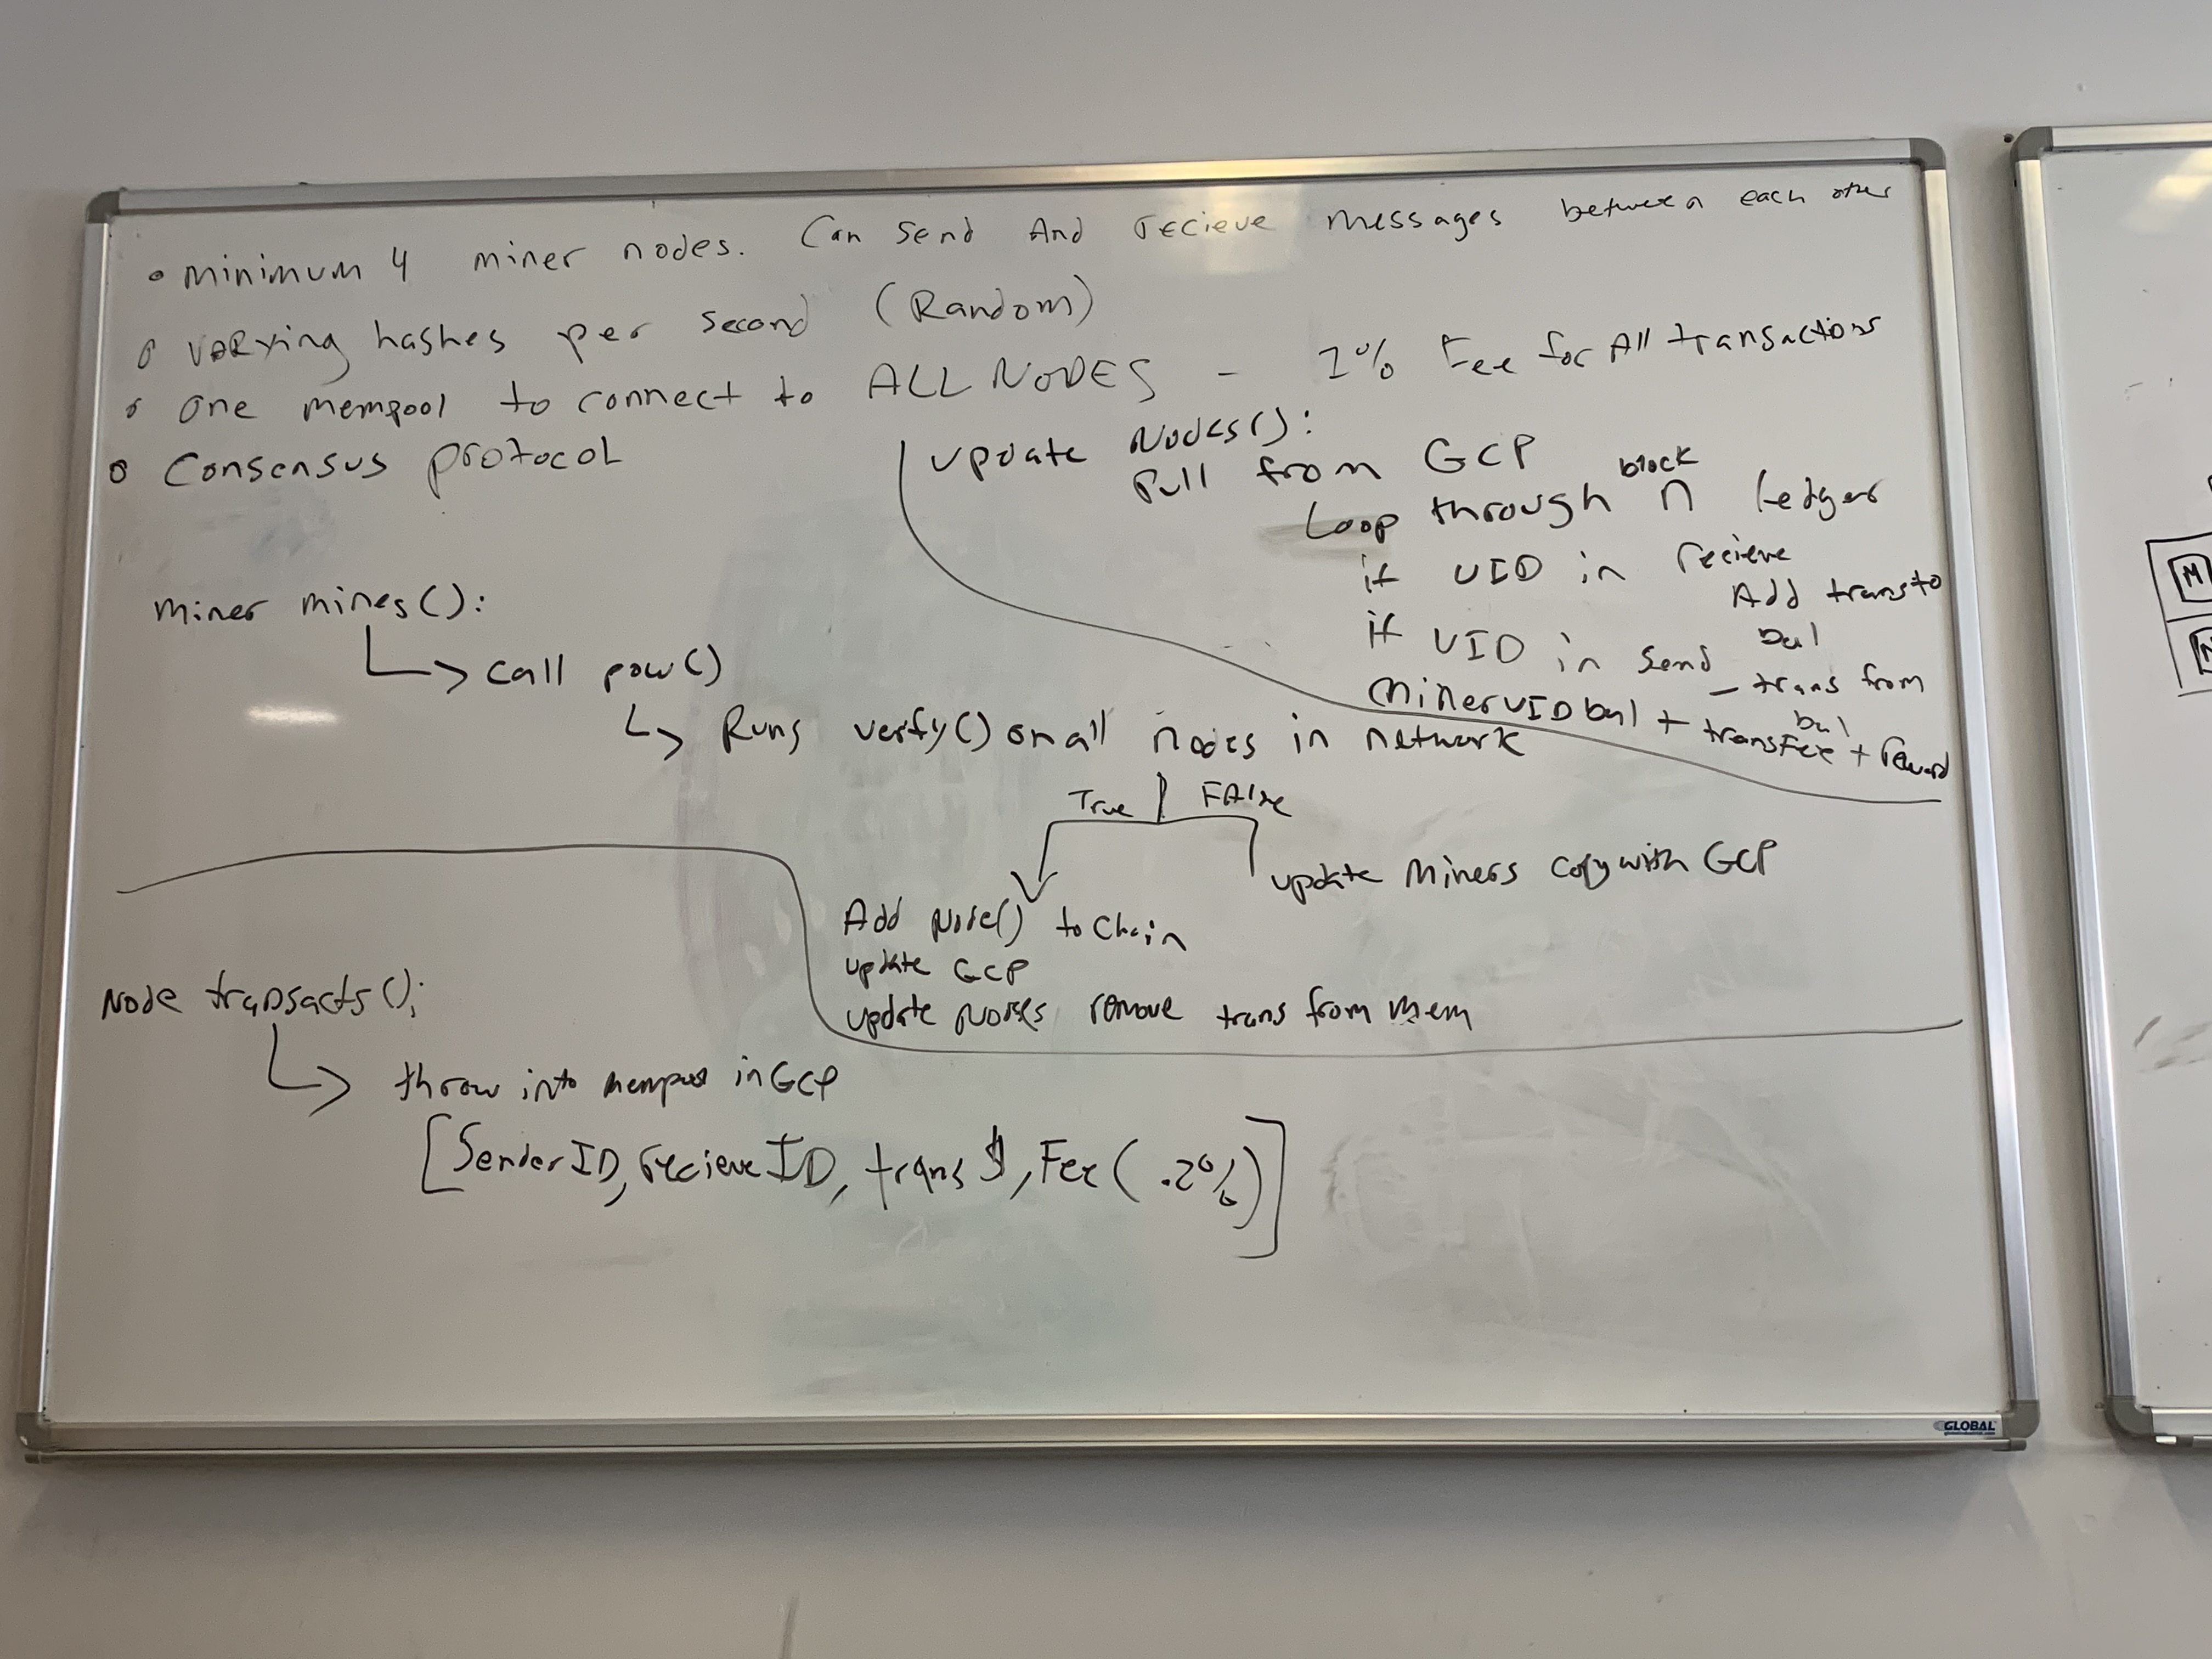 • minimum 4 miner nodes. Can send And recieve messages between each other
• VARying hashes per second (Random)
• One mempool to connect to ALL NODES - 2% Fee for All transactions
• Consensus protocol
update Nodes():
Pull from GCP
Loop through block n ledger
if UID in recieve
Add trans to bal
if UID in send
- trans from bal
minerUIDbal + transFee + reward
miner mines():
call pow()
Runs verify() on all nodes in network
True FAlse
update miners copy with GCP
Add Node() to Chain
update GCP
update Nodes remove trans from mem
Node transacts();
throw into mempool in GCP
[SenderID, recieveID, trans $, Fee (.2%)]
GLOBAL
M